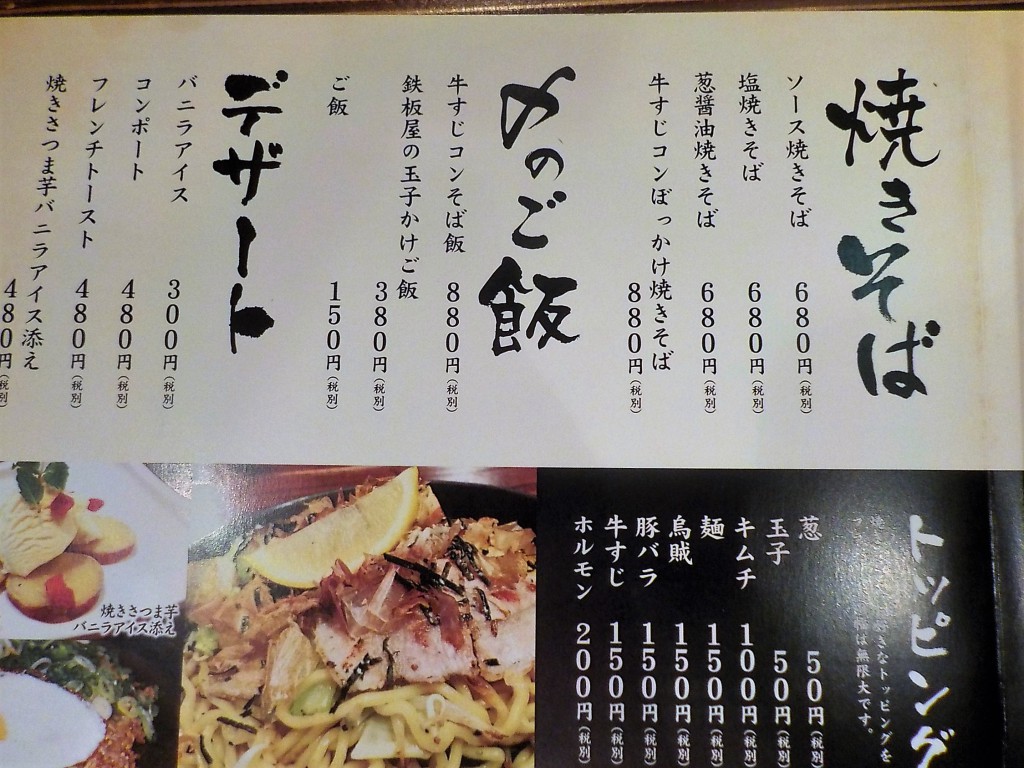 焼きそば
ソース焼きそば 680円(税別)
塩焼きそば 680円(税別)
葱醤油焼きそば 680円(税別)
牛すじコンぼっかけ焼きそば
880円(税別)
〆のご飯
牛すじコンそば飯 880円(税別)
鉄板屋の玉子かけご飯
380円(税別)
ご飯 150円(税別)
デザート
バニラアイス 300円(税別)
コンポート 480円(税別)
フレンチトースト 480円(税別)
焼きさつま芋バニラアイス添え
480円(税別)
トッピング
好きなトッピングを
は無限大です。
葱 50円(税別)
玉子 50円(税別)
キムチ 100円(税別)
麺 150円(税別)
烏賊 150円(税別)
豚バラ 150円(税別)
牛すじ 150円(税別)
ホルモン 200円(税別)
焼きさつま芋
バニラアイス添え